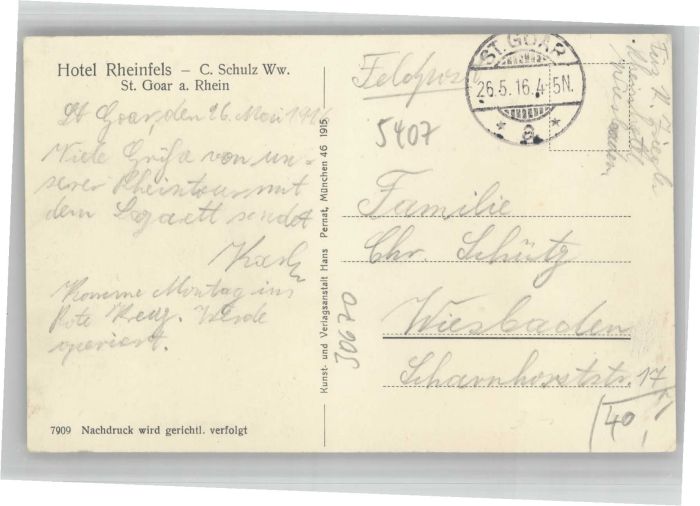 Hotel Rheinfels – C. Schulz Ww.
St. Goar a. Rhein
St Goar, den 26. Mai 1916
Viele Grüße von un-
serer Rheintour mit
dem Lazarett sendet
Karl
Komme Montag ins
Rote Kreuz. Werde
operiert.
7909 Nachdruck wird gerichtl. verfolgt
Kunst- und Verlagsanstalt Hans Pernat, München 46 1915
30670
Feldpost
5407
ST. GOAR
26.5.16.4-5N.
* a *
Familie
Chr. Schütz
Wiesbaden
Scharnhorststr. 17
40